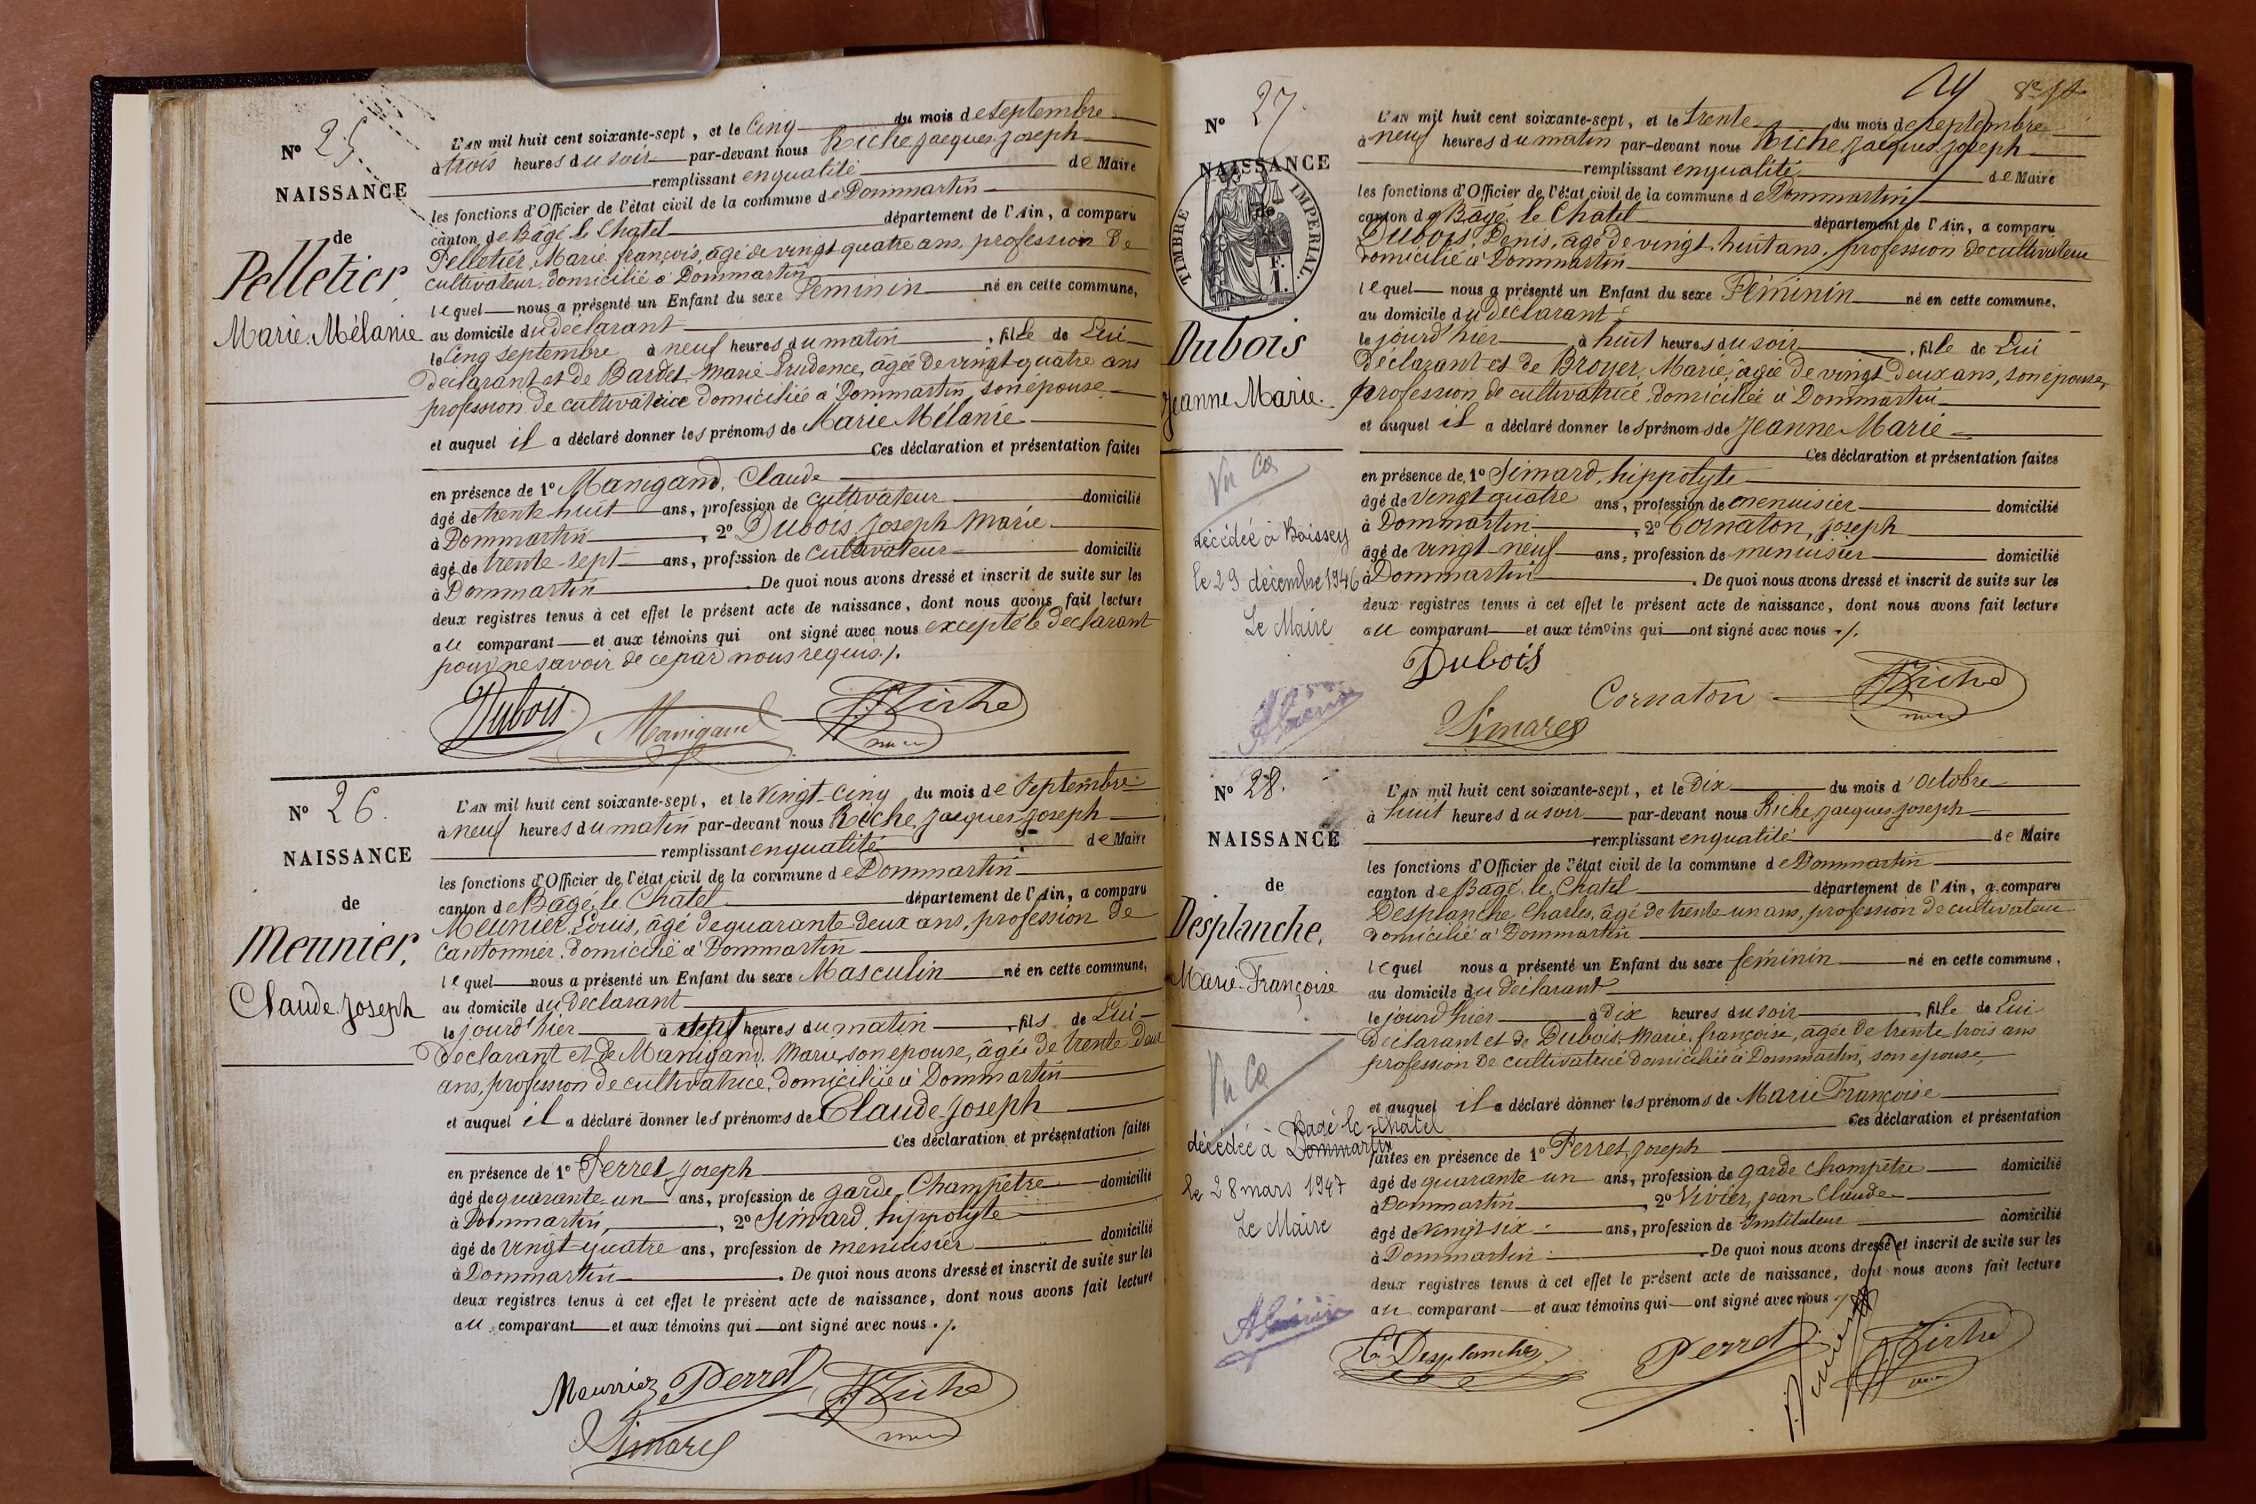 Nº 25.
NAISSANCE
de
Pelletier
Marie Mélanie
L'AN mil huit cent soixante-sept, et le Cinq du mois de septembre
à trois heures du soir par-devant nous Riche, Jacques Joseph
remplissant en qualité de Maire
les fonctions d'Officier de l'état civil de la commune de Dommartin
canton de Bâgé le Chatel département de l'Ain, a comparu
Pelletier, Marie françois, âgé de vingt quatre ans, profession de
cultivateur, domicilié à Dommartin
lequel nous a présenté un Enfant du sexe Féminin né en cette commune,
au domicile du déclarant
le Cinq septembre à neuf heures du matin, fille de Lui
déclarant et de Bardet, Marie Prudence, âgée de vingt-quatre ans
profession de cultivatrice domiciliée à Dommartin, son épouse
et auquel il a déclaré donner les prénoms de Marie Mélanie
Ces déclaration et présentation faites
en présence de 1º Manigand, Claude
âgé de trente huit ans, profession de cultivateur domicilié
à Dommartin, 2º Dubois, Joseph Marie
âgé de trente-sept ans, profession de cultivateur domicilié
à Dommartin. De quoi nous avons dressé et inscrit de suite sur les
deux registres tenus à cet effet le présent acte de naissance, dont nous avons fait lecture
au comparant et aux témoins qui ont signé avec nous excepté le déclarant
pour ne savoir de ce par nous requis ./.
Dubois Manigand Riche
Nº 26.
NAISSANCE
de
Meunier,
Claude Joseph
L'AN mil huit cent soixante-sept, et le Vingt-Cinq du mois de Septembre
à neuf heures du matin par-devant nous Riche, Jacques Joseph
remplissant en qualité de Maire
les fonctions d'Officier de l'état civil de la commune de Dommartin
canton de Bâgé le Chatel département de l'Ain, a comparu
Meunier, Louis, âgé de quarante deux ans, profession de
Cantonnier, domicilié à Dommartin
lequel nous a présenté un Enfant du sexe Masculin né en cette commune,
au domicile du déclarant
le jourd'hier à sept heures du matin, fils de Lui
déclarant et de Manigand, Marie, son épouse, âgée de trente deux
ans, profession de cultivatrice, domiciliée à Dommartin
et auquel il a déclaré donner les prénoms de Claude Joseph
Ces déclaration et présentation faites
en présence de 1º Perret, Joseph
âgé de quarante un ans, profession de garde Champêtre domicilié
à Dommartin, 2º Simard, hippolyte
âgé de vingt quatre ans, profession de menuisier domicilié
à Dommartin. De quoi nous avons dressé et inscrit de suite sur les
deux registres tenus à cet effet le présent acte de naissance, dont nous avons fait lecture
au comparant et aux témoins qui ont signé avec nous ./.
Meunier Perret Riche
Simard
Nº 27.
NAISSANCE
de
TIMBRE IMPERIAL.
F.
1.
Dubois
Jeanne Marie.
Vu
décédée à Boissey
le 29 décembre 1946
Le Maire
L'AN mil huit cent soixante-sept, et le trente du mois de Septembre
à neuf heures du matin par-devant nous Riche, Jacques Joseph
remplissant en qualité de Maire
les fonctions d'Officier de l'état civil de la commune de Dommartin
canton de Bâgé le Chatel département de l'Ain, a comparu
Dubois, Denis, âgé de vingt-huit ans, profession de cultivateur
domicilié à Dommartin
lequel nous a présenté un Enfant du sexe Féminin né en cette commune,
au domicile du déclarant
le jourd'hier à huit heures du soir, fille de Lui
déclarant et de Broyer, Marie, âgée de vingt deux ans, son épouse,
profession de cultivatrice, domiciliée à Dommartin
et auquel il a déclaré donner les prénoms de Jeanne Marie
Ces déclaration et présentation faites
en présence de 1º Simard, hippolyte
âgé de vingt quatre ans, profession de menuisier domicilié
à Dommartin, 2º Cornaton, Joseph
âgé de vingt-neuf ans, profession de menuisier domicilié
à Dommartin. De quoi nous avons dressé et inscrit de suite sur les
deux registres tenus à cet effet le présent acte de naissance, dont nous avons fait lecture
au comparant et aux témoins qui ont signé avec nous ./.
Dubois
Simard Cornaton Riche
Nº 28.
NAISSANCE
de
Desplanche,
Marie Françoise
Vu
décédée à Dommartin Bagé le Chatel
le 28 mars 1947
Le Maire
L'AN mil huit cent soixante-sept, et le Dix du mois d'Octobre
à huit heures du soir par-devant nous Riche, Jacques Joseph
remplissant en qualité de Maire
les fonctions d'Officier de l'état civil de la commune de Dommartin
canton de Bâgé le Chatel département de l'Ain, a comparu
Desplanche, Charles, âgé de trente un ans, profession de cultivateur
domicilié à Dommartin
lequel nous a présenté un Enfant du sexe féminin né en cette commune,
au domicile du déclarant
le jourd'hier à dix heures du soir, fille de Lui
déclarant et de Dubois, Marie françoise, âgée de trente trois ans
profession de cultivatrice domiciliée à Dommartin, son épouse,
et auquel il a déclaré donner les prénoms de Marie Françoise
Ces déclaration et présentation
faites en présence de 1º Perret, Joseph
âgé de quarante un ans, profession de garde Champêtre domicilié
à Dommartin, 2º Vivier, Jean Claude
âgé de vingt six ans, profession de Instituteur domicilié
à Dommartin. De quoi nous avons dressé et inscrit de suite sur les
deux registres tenus à cet effet le présent acte de naissance, dont nous avons fait lecture
au comparant et aux témoins qui ont signé avec nous
C. Desplanches Perret Vivier Riche